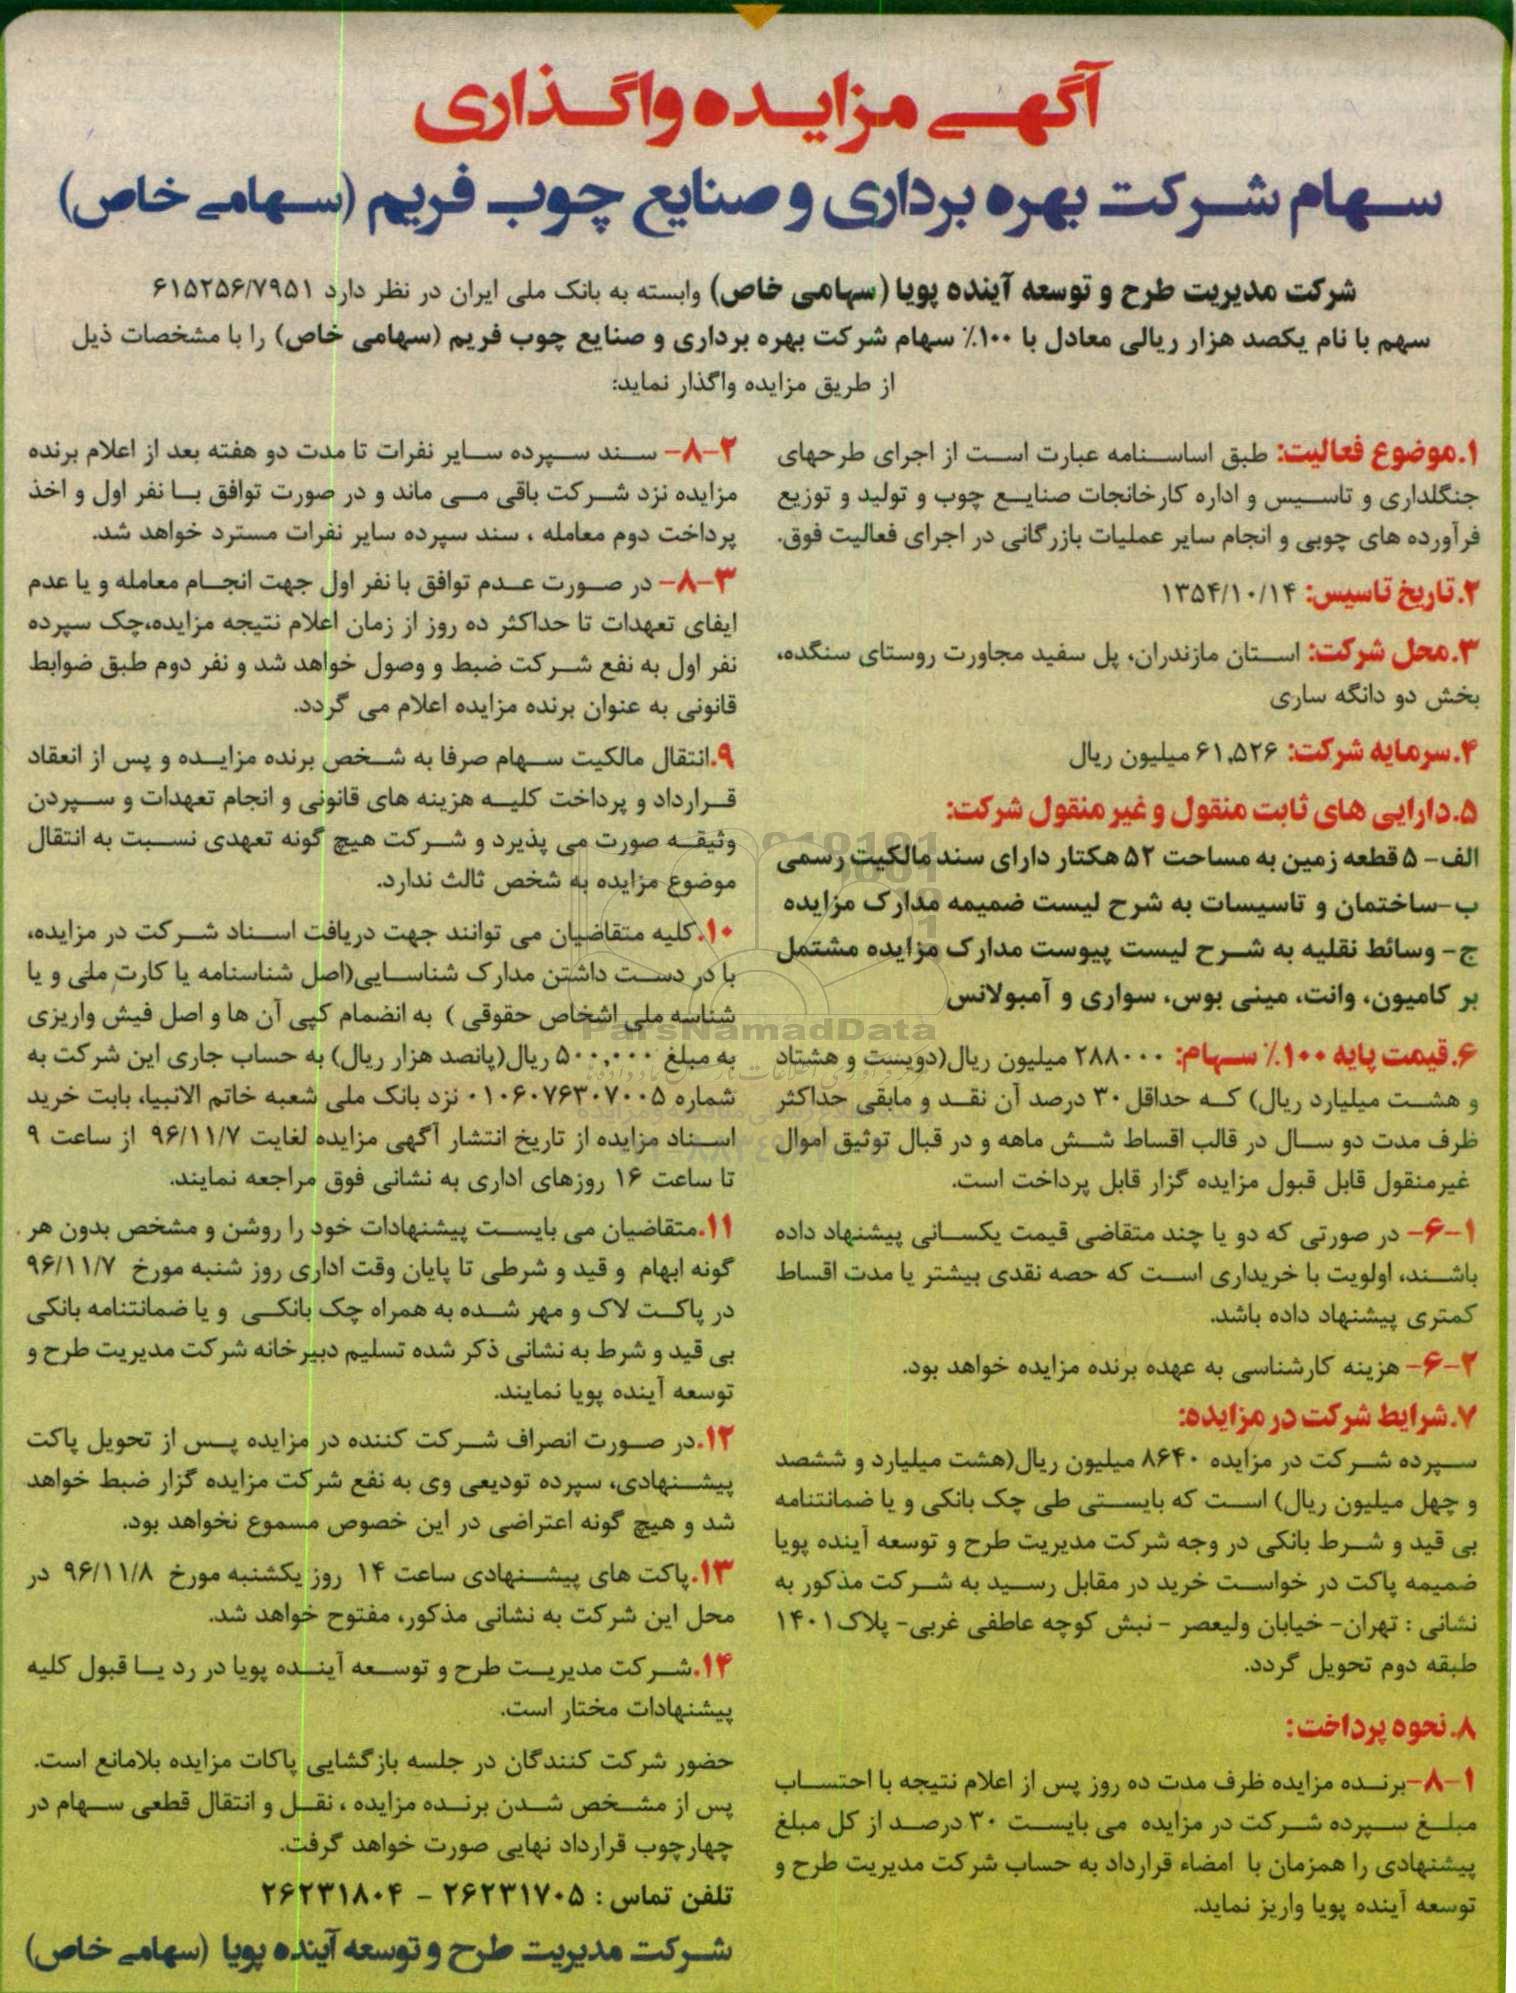 آگهی مزایده واگذاری
سهام شرکت بهره برداری و صنایع چوب فریم (سهامی خاص)
شرکت مدیریت طرح و توسعه آینده پویا (سهامی خاص) وابسته به بانک ملی ایران در نظر دارد ۶۱۵۲۵۶/۷۹۵۱
سهم با نام یکصد هزار ریالی معادل با ۱۰۰٪ سهام شرکت بهره برداری و صنایع چوب فریم (سهامی خاص) را با مشخصات ذیل
از طریق مزایده واگذار نماید:
۱.موضوع فعالیت: طبق اساسنامه عبارت است از اجرای طرحهای
جنگلداری و تاسیس و اداره کارخانجات صنایع چوب و تولید و توزیع
فرآورده های چوبی و انجام سایر عملیات بازرگانی در اجرای فعالیت فوق.
۲.تاریخ تاسیس: ۱۳۵۴/۱۰/۱۴
۳.محل شرکت: استان مازندران، پل سفید مجاورت روستای سنگده،
بخش دو دانگه ساری
۴.سرمایه شرکت: ۶۱,۵۲۶ میلیون ریال
۵.دارایی های ثابت منقول و غیر منقول شرکت:
الف- ۵ قطعه زمین به مساحت ۵۲ هکتار دارای سند مالکیت رسمی
ب-ساختمان و تاسیسات به شرح لیست ضمیمه مدارک مزایده
ج- وسائط نقلیه به شرح لیست پیوست مدارک مزایده مشتمل
بر کامیون، وانت، مینی بوس، سواری و آمبولانس
۶.قیمت پایه ۱۰۰٪ سهام: ۲۸۸۰۰۰ میلیون ریال(دویست و هشتاد
و هشت میلیارد ریال) که حداقل ۳۰ درصد آن نقد و مابقی حداکثر
ظرف مدت دو سال در قالب اقساط شش ماهه و در قبال توثیق اموال
غیرمنقول قابل قبول مزایده گزار قابل پرداخت است.
۶-۱- در صورتی که دو یا چند متقاضی قیمت یکسانی پیشنهاد داده
باشند، اولویت با خریداری است که حصه نقدی بیشتر یا مدت اقساط
کمتری پیشنهاد داده باشد.
۶-۲- هزینه کارشناسی به عهده برنده مزایده خواهد بود.
۷.شرایط شرکت در مزایده:
سپرده شرکت در مزایده ۸۶۴۰ میلیون ریال(هشت میلیارد و ششصد
و چهل میلیون ریال) است که بایستی طی چک بانکی و یا ضمانتنامه
بی قید و شرط بانکی در وجه شرکت مدیریت طرح و توسعه آینده پویا
ضمیمه پاکت در خواست خرید در مقابل رسید به شرکت مذکور به
نشانی : تهران- خیابان ولیعصر - نبش کوچه عاطفی غربی- پلاک۱۴۰۱
طبقه دوم تحویل گردد.
۸.نحوه پرداخت:
۸-۱-برنده مزایده ظرف مدت ده روز پس از اعلام نتیجه با احتساب
مبلغ سپرده شرکت در مزایده می بایست ۳۰ درصد از کل مبلغ
پیشنهادی را همزمان با امضاء قرارداد به حساب شرکت مدیریت طرح و
توسعه آینده پویا واریز نماید.
۸-۲- سند سپرده سایر نفرات تا مدت دو هفته بعد از اعلام برنده
مزایده نزد شرکت باقی می ماند و در صورت توافق با نفر اول و اخذ
پرداخت دوم معامله ، سند سپرده سایر نفرات مسترد خواهد شد.
۸-۳- در صورت عدم توافق با نفر اول جهت انجام معامله و یا عدم
ایفای تعهدات تا حداکثر ده روز از زمان اعلام نتیجه مزایده،چک سپرده
نفر اول به نفع شرکت ضبط و وصول خواهد شد و نفر دوم طبق ضوابط
قانونی به عنوان برنده مزایده اعلام می گردد.
۹.انتقال مالکیت سهام صرفا به شخص برنده مزایده و پس از انعقاد
قرارداد و پرداخت کلیه هزینه های قانونی و انجام تعهدات و سپردن
وثیقه صورت می پذیرد و شرکت هیچ گونه تعهدی نسبت به انتقال
موضوع مزایده به شخص ثالث ندارد.
۱۰.کلیه متقاضیان می توانند جهت دریافت اسناد شرکت در مزایده،
با در دست داشتن مدارک شناسایی(اصل شناسنامه یا کارت ملی و یا
شناسه ملی اشخاص حقوقی ) به انضمام کپی آن ها و اصل فیش واریزی
به مبلغ ۵۰۰,۰۰۰ ریال(پانصد هزار ریال) به حساب جاری این شرکت به
شماره ۰۱۰۶۰۷۶۳۰۷۰۰۵ نزد بانک ملی شعبه خاتم الانبیا، بابت خرید
اسناد مزایده از تاریخ انتشار آگهی مزایده لغایت ۹۶/۱۱/۷ از ساعت ۹
تا ساعت ۱۶ روزهای اداری به نشانی فوق مراجعه نمایند.
۱۱.متقاضیان می بایست پیشنهادات خود را روشن و مشخص بدون هر
گونه ابهام و قید و شرطی تا پایان وقت اداری روز شنبه مورخ ۹۶/۱۱/۷
در پاکت لاک و مهر شده به همراه چک بانکی و یا ضمانتنامه بانکی
بی قید و شرط به نشانی ذکر شده تسلیم دبیرخانه شرکت مدیریت طرح و
توسعه آینده پویا نمایند.
۱۲.در صورت انصراف شرکت کننده در مزایده پس از تحویل پاکت
پیشنهادی، سپرده تودیعی وی به نفع شرکت مزایده گزار ضبط خواهد
شد و هیچ گونه اعتراضی در این خصوص مسموع نخواهد بود.
۱۳.پاکت های پیشنهادی ساعت ۱۴ روز یکشنبه مورخ ۹۶/۱۱/۸ در
محل این شرکت به نشانی مذکور، مفتوح خواهد شد.
۱۴.شرکت مدیریت طرح و توسعه آینده پویا در رد یا قبول کلیه
پیشنهادات مختار است.
حضور شرکت کنندگان در جلسه بازگشایی پاکات مزایده بلامانع است.
پس از مشخص شدن برنده مزایده ، نقل و انتقال قطعی سهام در
چهارچوب قرارداد نهایی صورت خواهد گرفت.
تلفن تماس : ۲۶۲۳۱۷۰۵ - ۲۶۲۳۱۸۰۴
شرکت مدیریت طرح و توسعه آینده پویا (سهامی خاص)
ParsNamadData